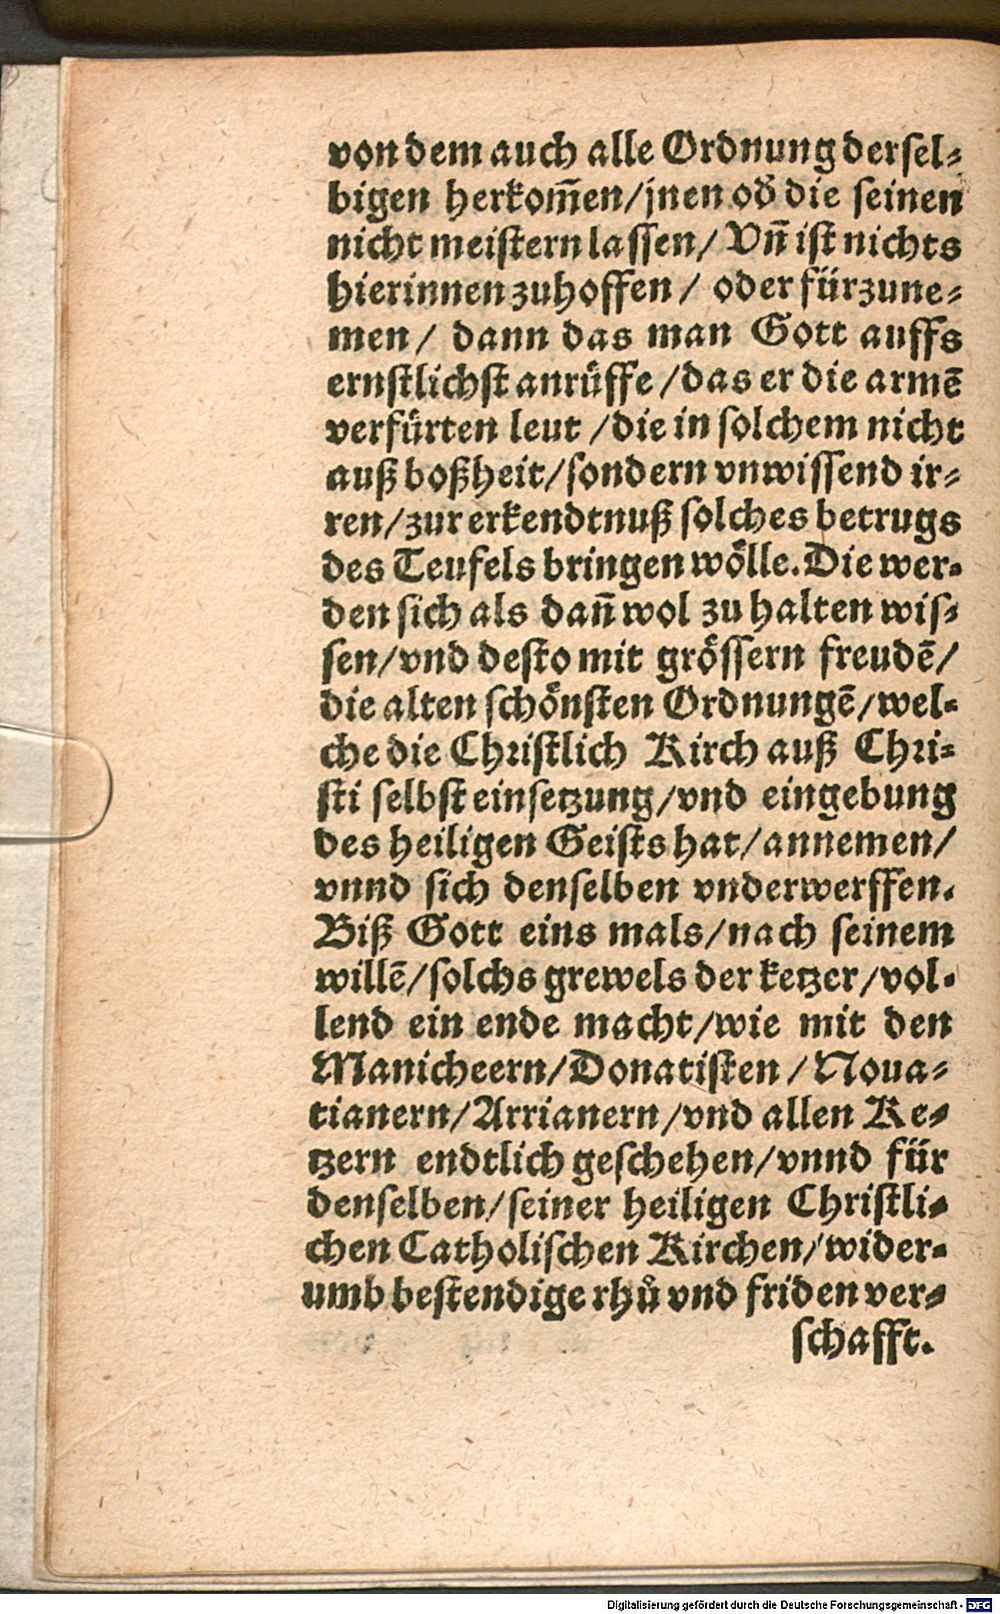 von dem auch alle Ordnung dersel⸗
bigen herkom̃en/jnen od̕ die seinen
nicht meistern lassen/ Vñ ist nichts
hierinnen zuhoffen / oder fürzune⸗
men / dann das man Gott auffs
ernstlichst anrüffe /das er die armẽ
verfürten leut /die in solchem nicht
auß boßheit/sondern vnwissend ir⸗
ren/zur erkendtnuß solches betrugs
des Teufels bringen wölle. Die wer⸗
den sich als dañ wol zu halten wis⸗
sen/vnd desto mit grössern freudẽ/
die alten schönsten Ordnungẽ/wel⸗
che die Christlich Kirch auß Chri⸗
sti selbst einsetzung/vnd eingebung
des heiligen Geists hat/annemen/
vnnd sich denselben vnderwerffen.
Biß Gott eins mals/nach seinem
willẽ/solchs grewels der ketzer/vol⸗
lend ein ende macht/wie mit den
Manicheern/Donatisten / Noua⸗
tianern/Arrianern/vnd allen Ke⸗
tzern endtlich geschehen/vnnd für
denselben/seiner heiligen Christli⸗
chen Catholischen Kirchen/wider⸗
umb bestendige rhů vnd friden ver⸗
schafft.
Digitalisierung gefördert durch die Deutsche Forschungsgemeinschaft - DFG